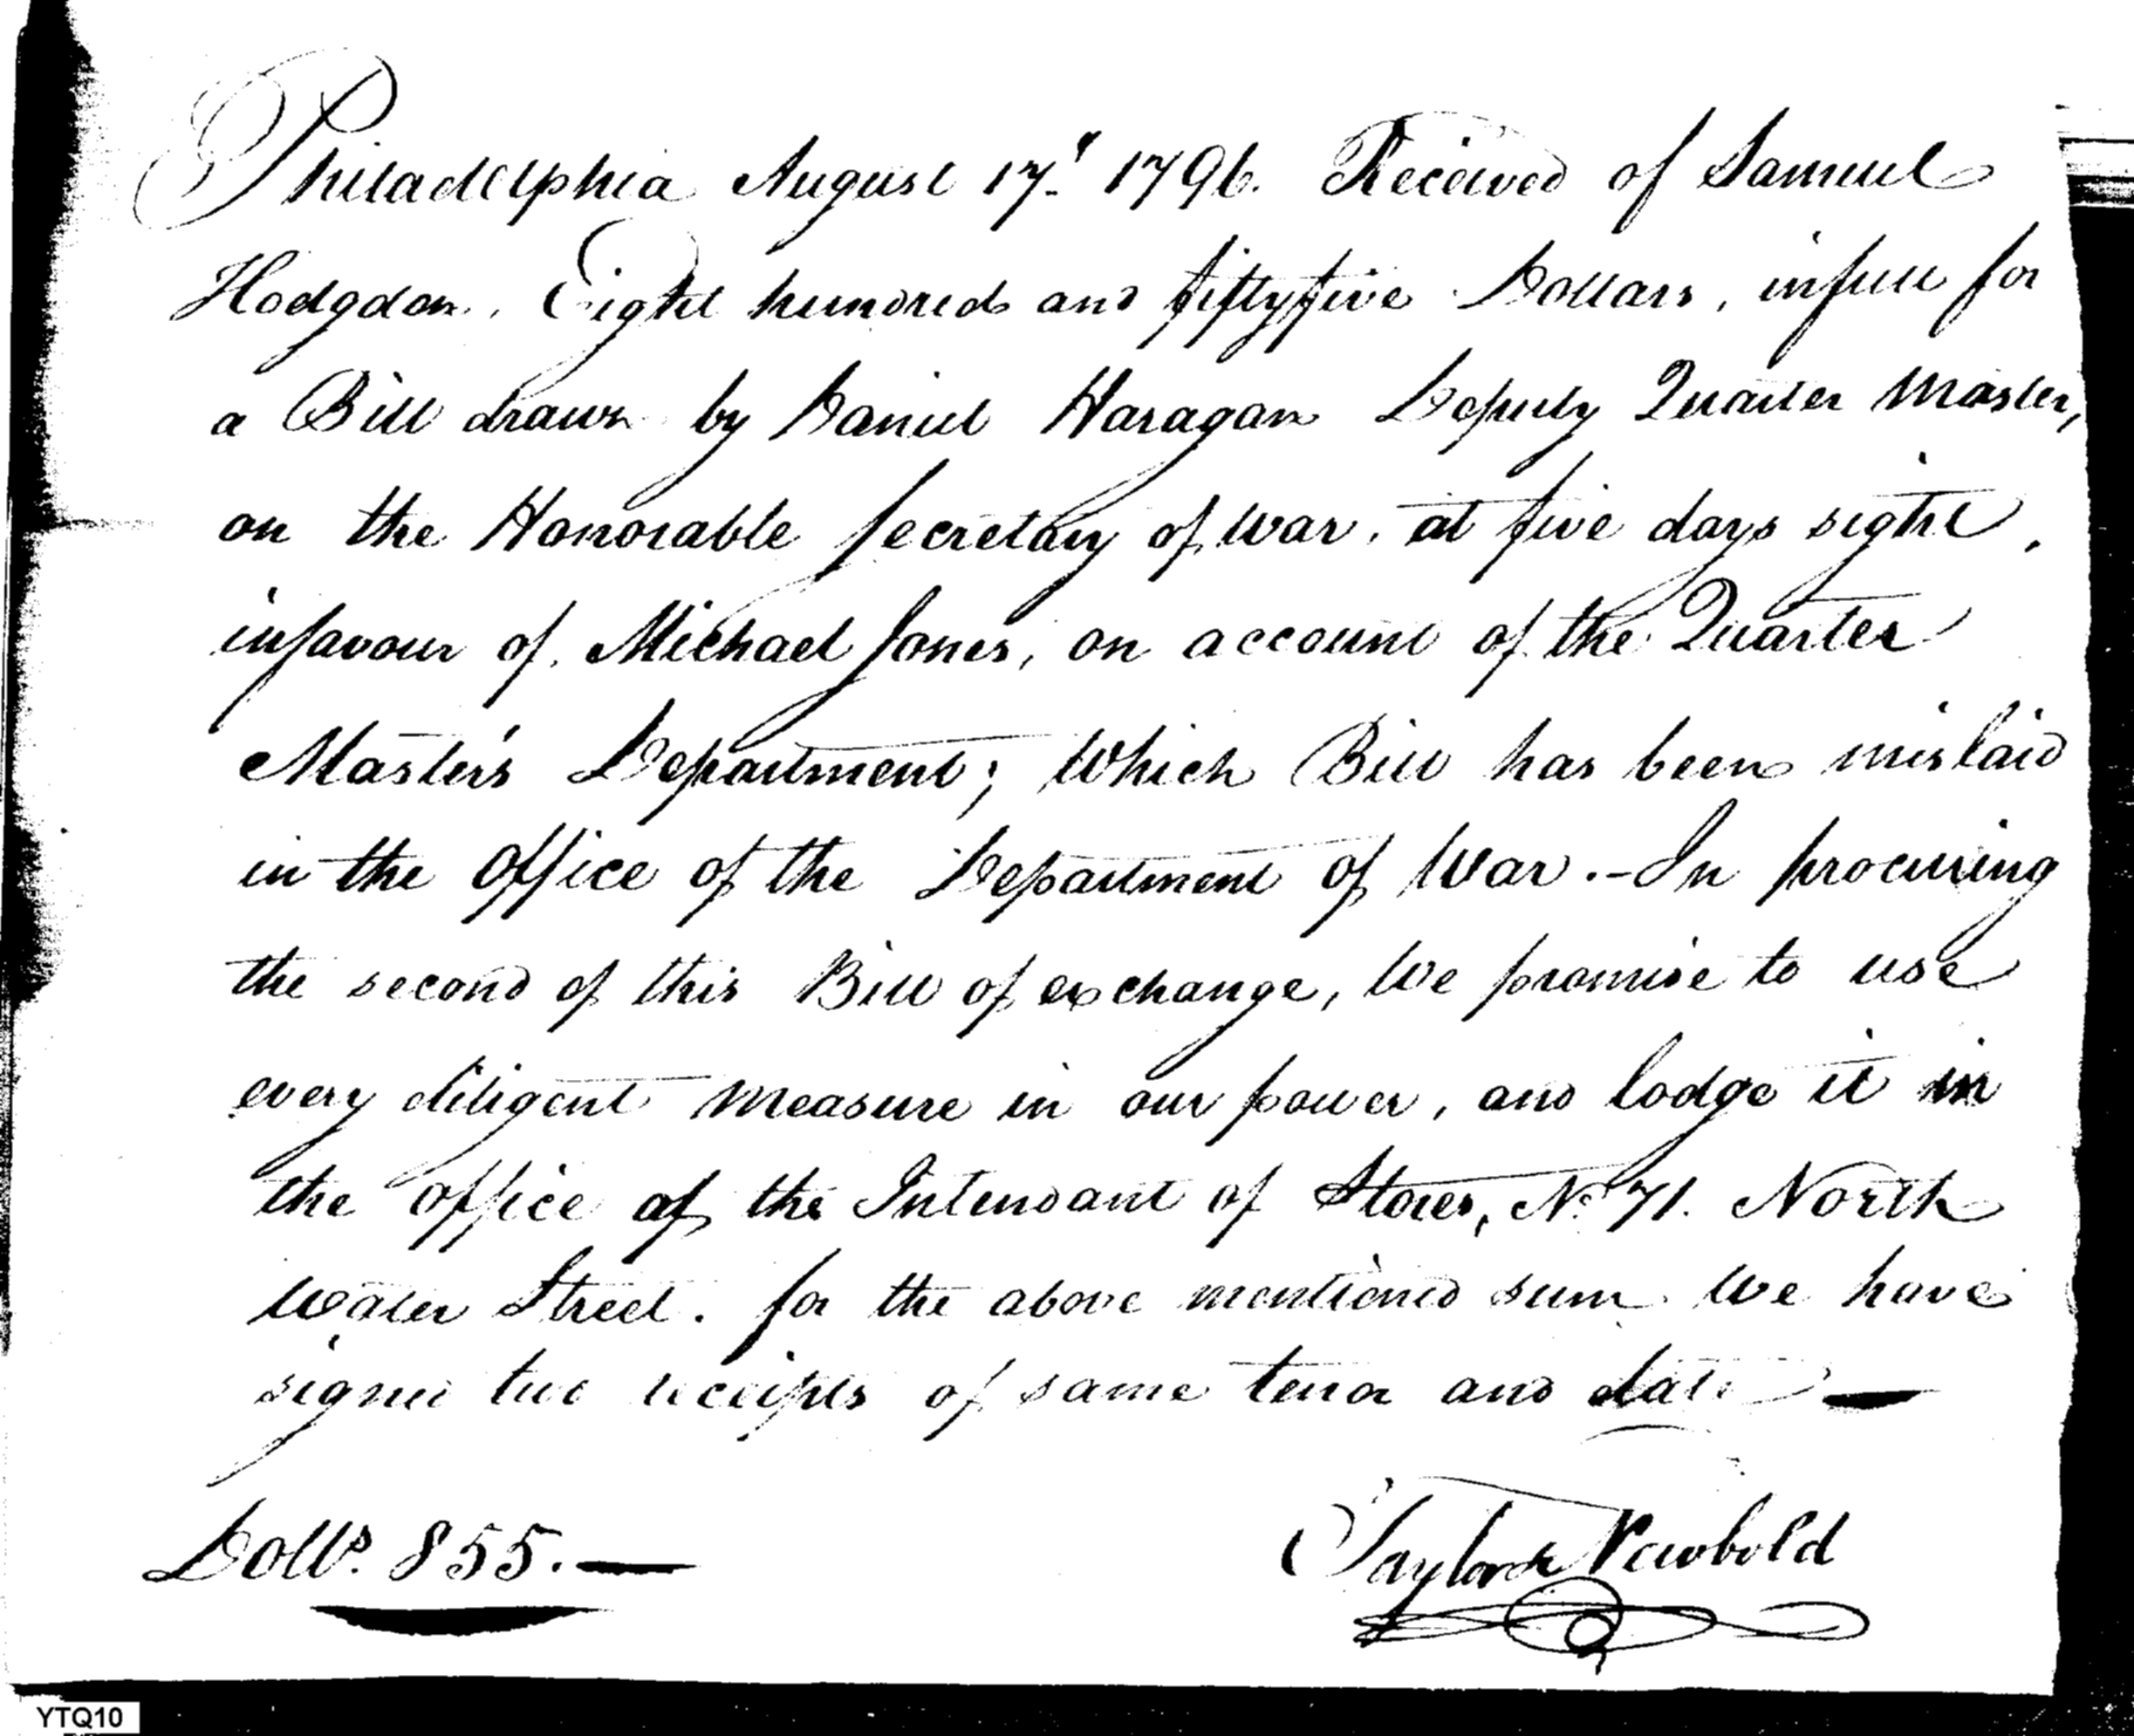 Philadelphia August 17th 1796. Received of Samuel
Hodgdon, Eight hundred and fifty five Dollars, in full for
a Bill drawn by Daniel Haragan Deputy Quarter Master,
on the Honorable Secretary of War, at five days sight,
in favour of Michael Jones, on account of the Quarter
Master's Department; Which Bill has been mislaid
in the Office of the Department of War.- In procuring
the second of this Bill of exchange, We promise to use
every diligent measure in our power, and lodge it in
the office of the Intendant of Stores, No. 71. North
Water Street. for the above mentioned sum We have
signed two receipts of same tenor and date —
Dolls. 855. —
Taylor & Newbold
YTQ10